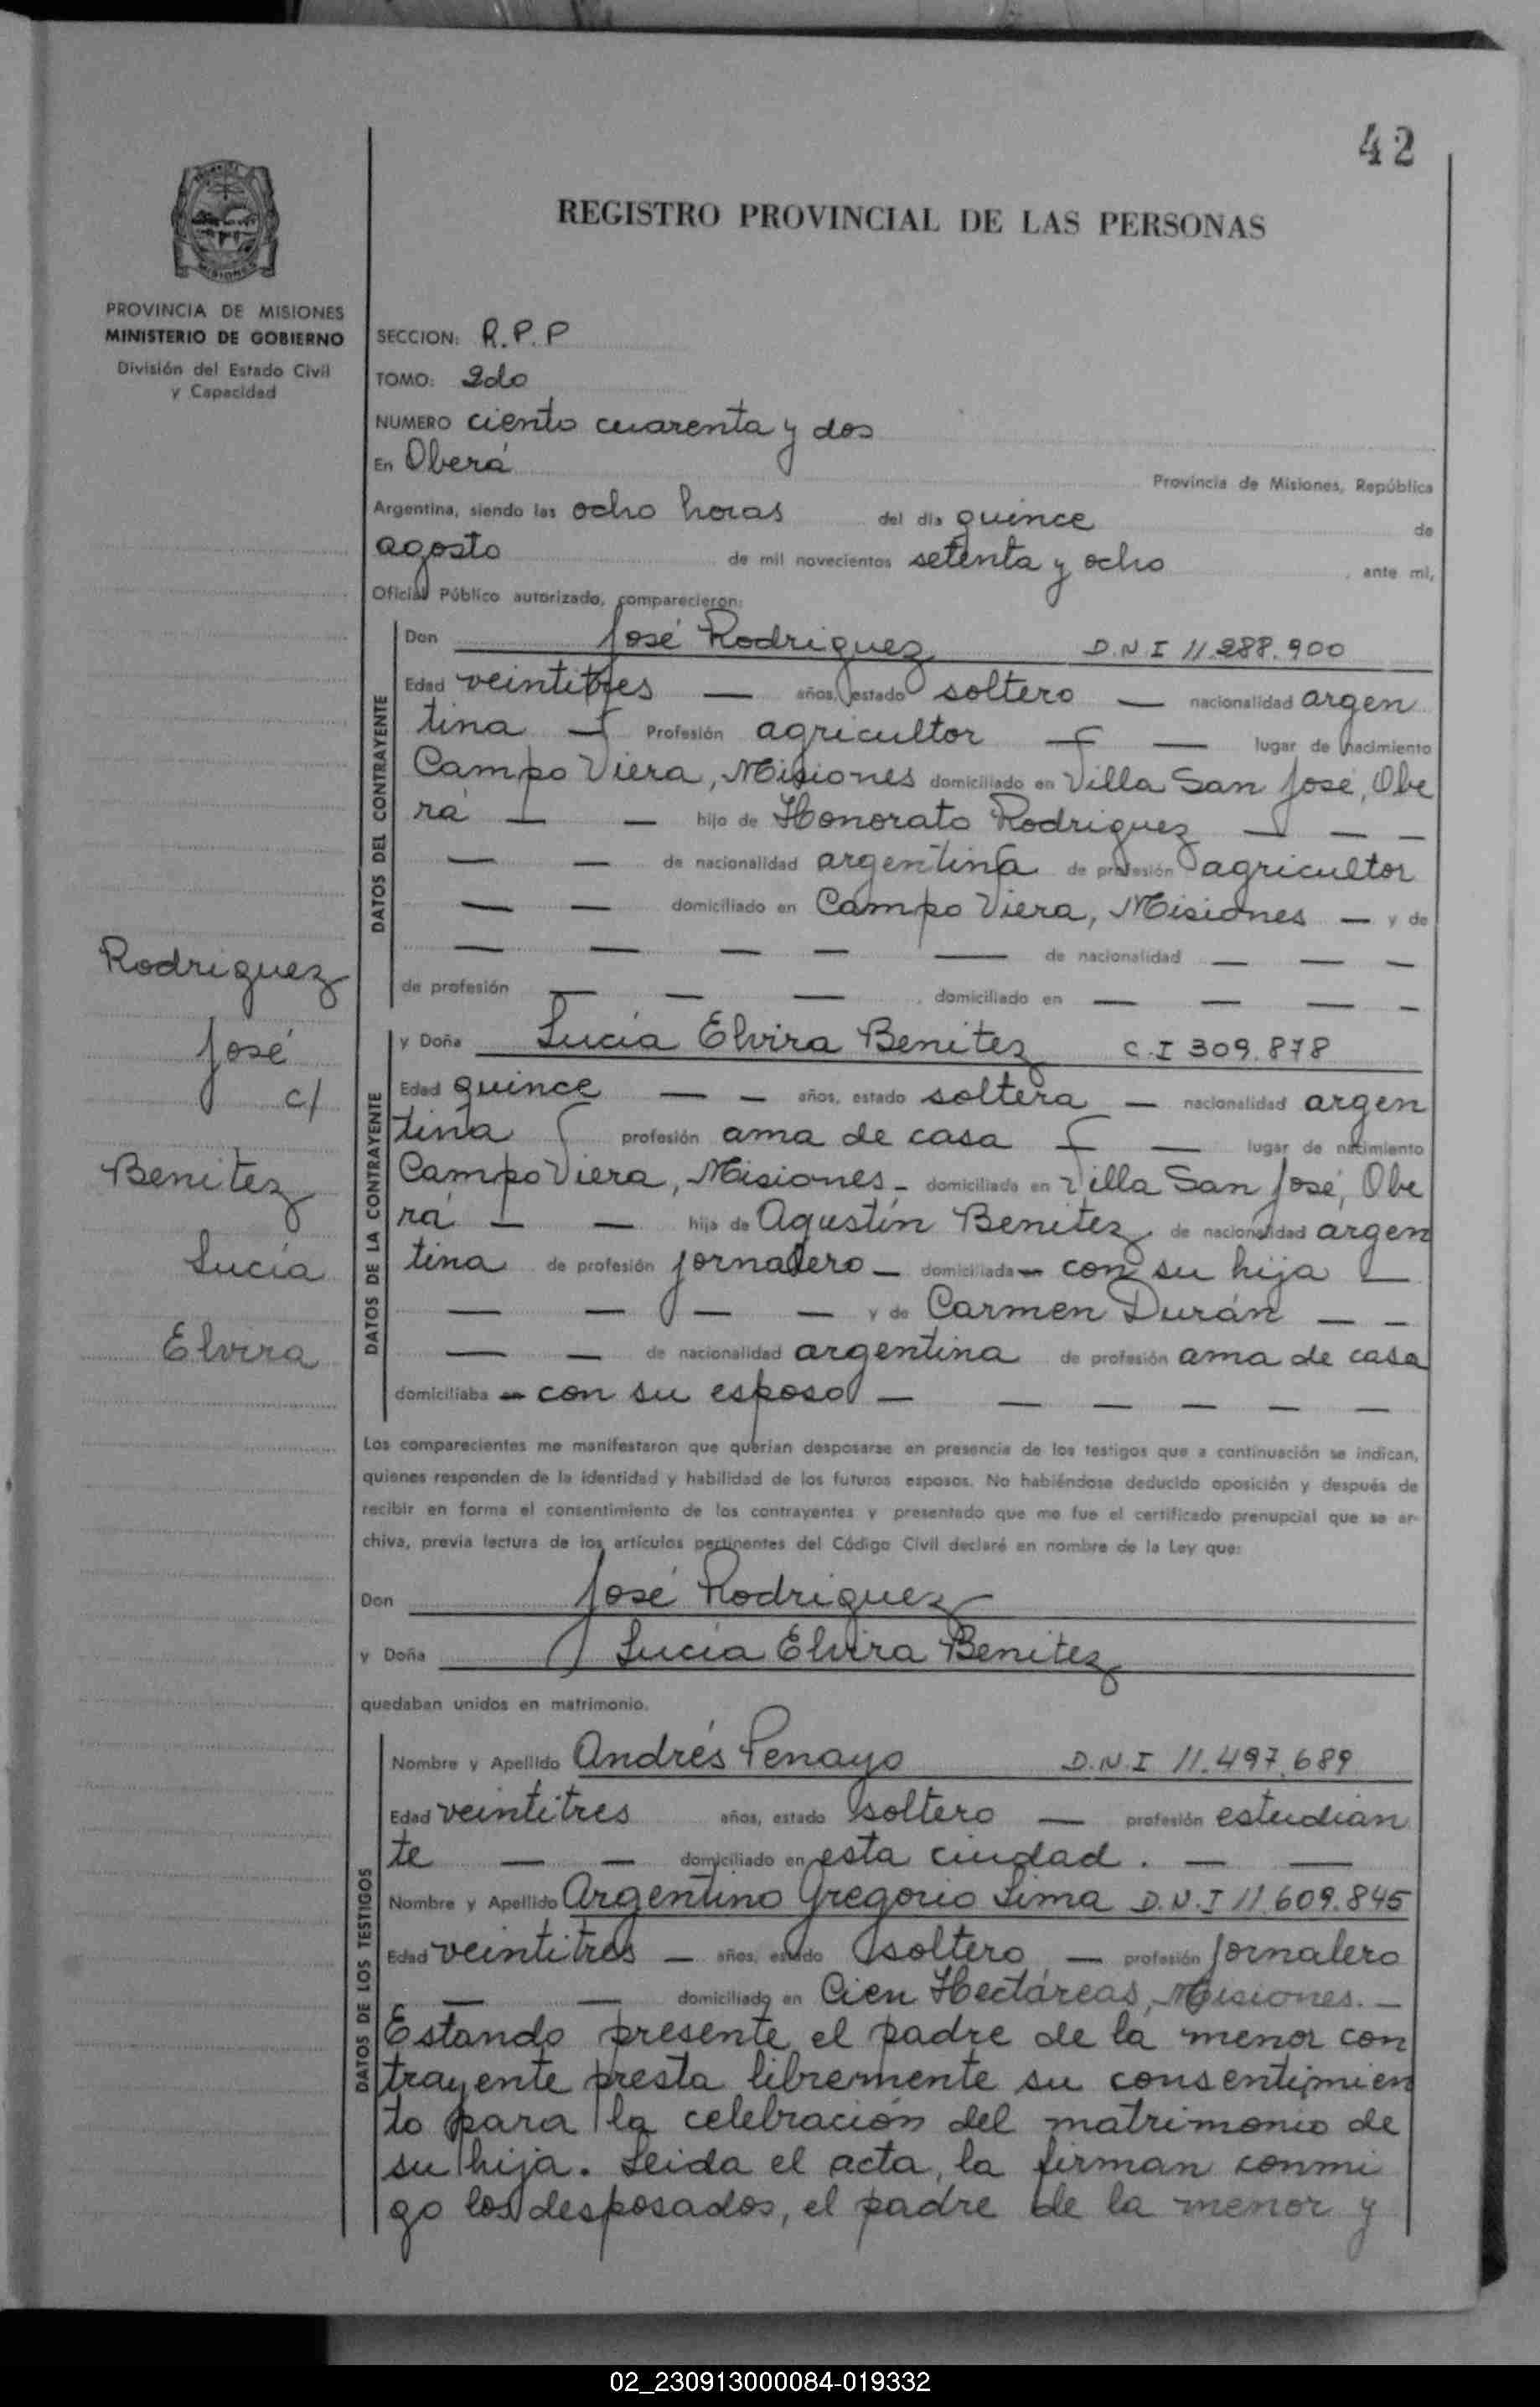 42
REGISTRO PROVINCIAL DE LAS PERSONAS
MISIONES
PROVINCIA DE MISIONES
MINISTERIO DE GOBIERNO
División del Estado Civil
y Capacidad
SECCION: R.P.P
TOMO: 2do
NUMERO ciento cuarenta y dos
En Oberá
Provincia de Misiones, República
Argentina, siendo las ocho horas del día quince de
agosto de mil novecientos setenta y ocho, ante mí,
Oficial Público autorizado, comparecieron:
DATOS DEL CONTRAYENTE
Don José Rodriguez D.N.I 11.288.900
Edad veintitres — años, estado soltero — nacionalidad argen
tina — Profesión agricultor — — lugar de nacimiento
Campo Viera, Misiones domiciliado en Villa San José, Obe
rá — — hijo de Honorato Rodriguez — — —
— — de nacionalidad argentina de profesión agricultor
— — domiciliado en Campo Viera, Misiones — y de
— — — — — de nacionalidad — — —
de profesión — — — , domiciliado en — — — —
DATOS DE LA CONTRAYENTE
y Doña Lucía Elvira Benitez C.I 309.878
Edad quince — — años, estado soltera — nacionalidad argen
tina profesión ama de casa — — lugar de nacimiento
Campo Viera, Misiones - domiciliada en Villa San José, Obe
rá — — hija de Agustín Benitez de nacionalidad argen
tina de profesión jornalero — domiciliada — con su hija —
— — — — y de Carmen Durán — —
— — de nacionalidad argentina de profesión ama de casa
domiciliaba — con su esposo — — — — — —
Rodriguez
José
c/
Benitez
Lucía
Elvira
Los comparecientes me manifestaron que querían desposarse en presencia de los testigos que a continuación se indican,
quienes responden de la identidad y habilidad de los futuros esposos. No habiéndose deducido oposición y después de
recibir en forma el consentimiento de los contrayentes y presentado que me fue el certificado prenupcial que se ar-
chiva, previa lectura de los artículos pertinentes del Código Civil declaré en nombre de la Ley que:
Don José Rodriguez
y Doña Lucía Elvira Benitez
quedaban unidos en matrimonio.
DATOS DE LOS TESTIGOS
Nombre y Apellido Andrés Penayo D.N.I 11.497.689
Edad veintitres años, estado soltero — profesión estudian
te — — domiciliado en esta ciudad. — —
Nombre y Apellido Argentino Gregorio Lima D.N.I 11.609.845
Edad veintitres — años, estado soltero — profesión jornalero
— — domiciliado en Cien Hectáreas, Misiones. —
Estando presente el padre de la menor con
trayente presta libremente su consentimien
to para la celebración del matrimonio de
su hija. Leida el acta, la firman conmi
go los desposados, el padre de la menor y
02_230913000084-019332